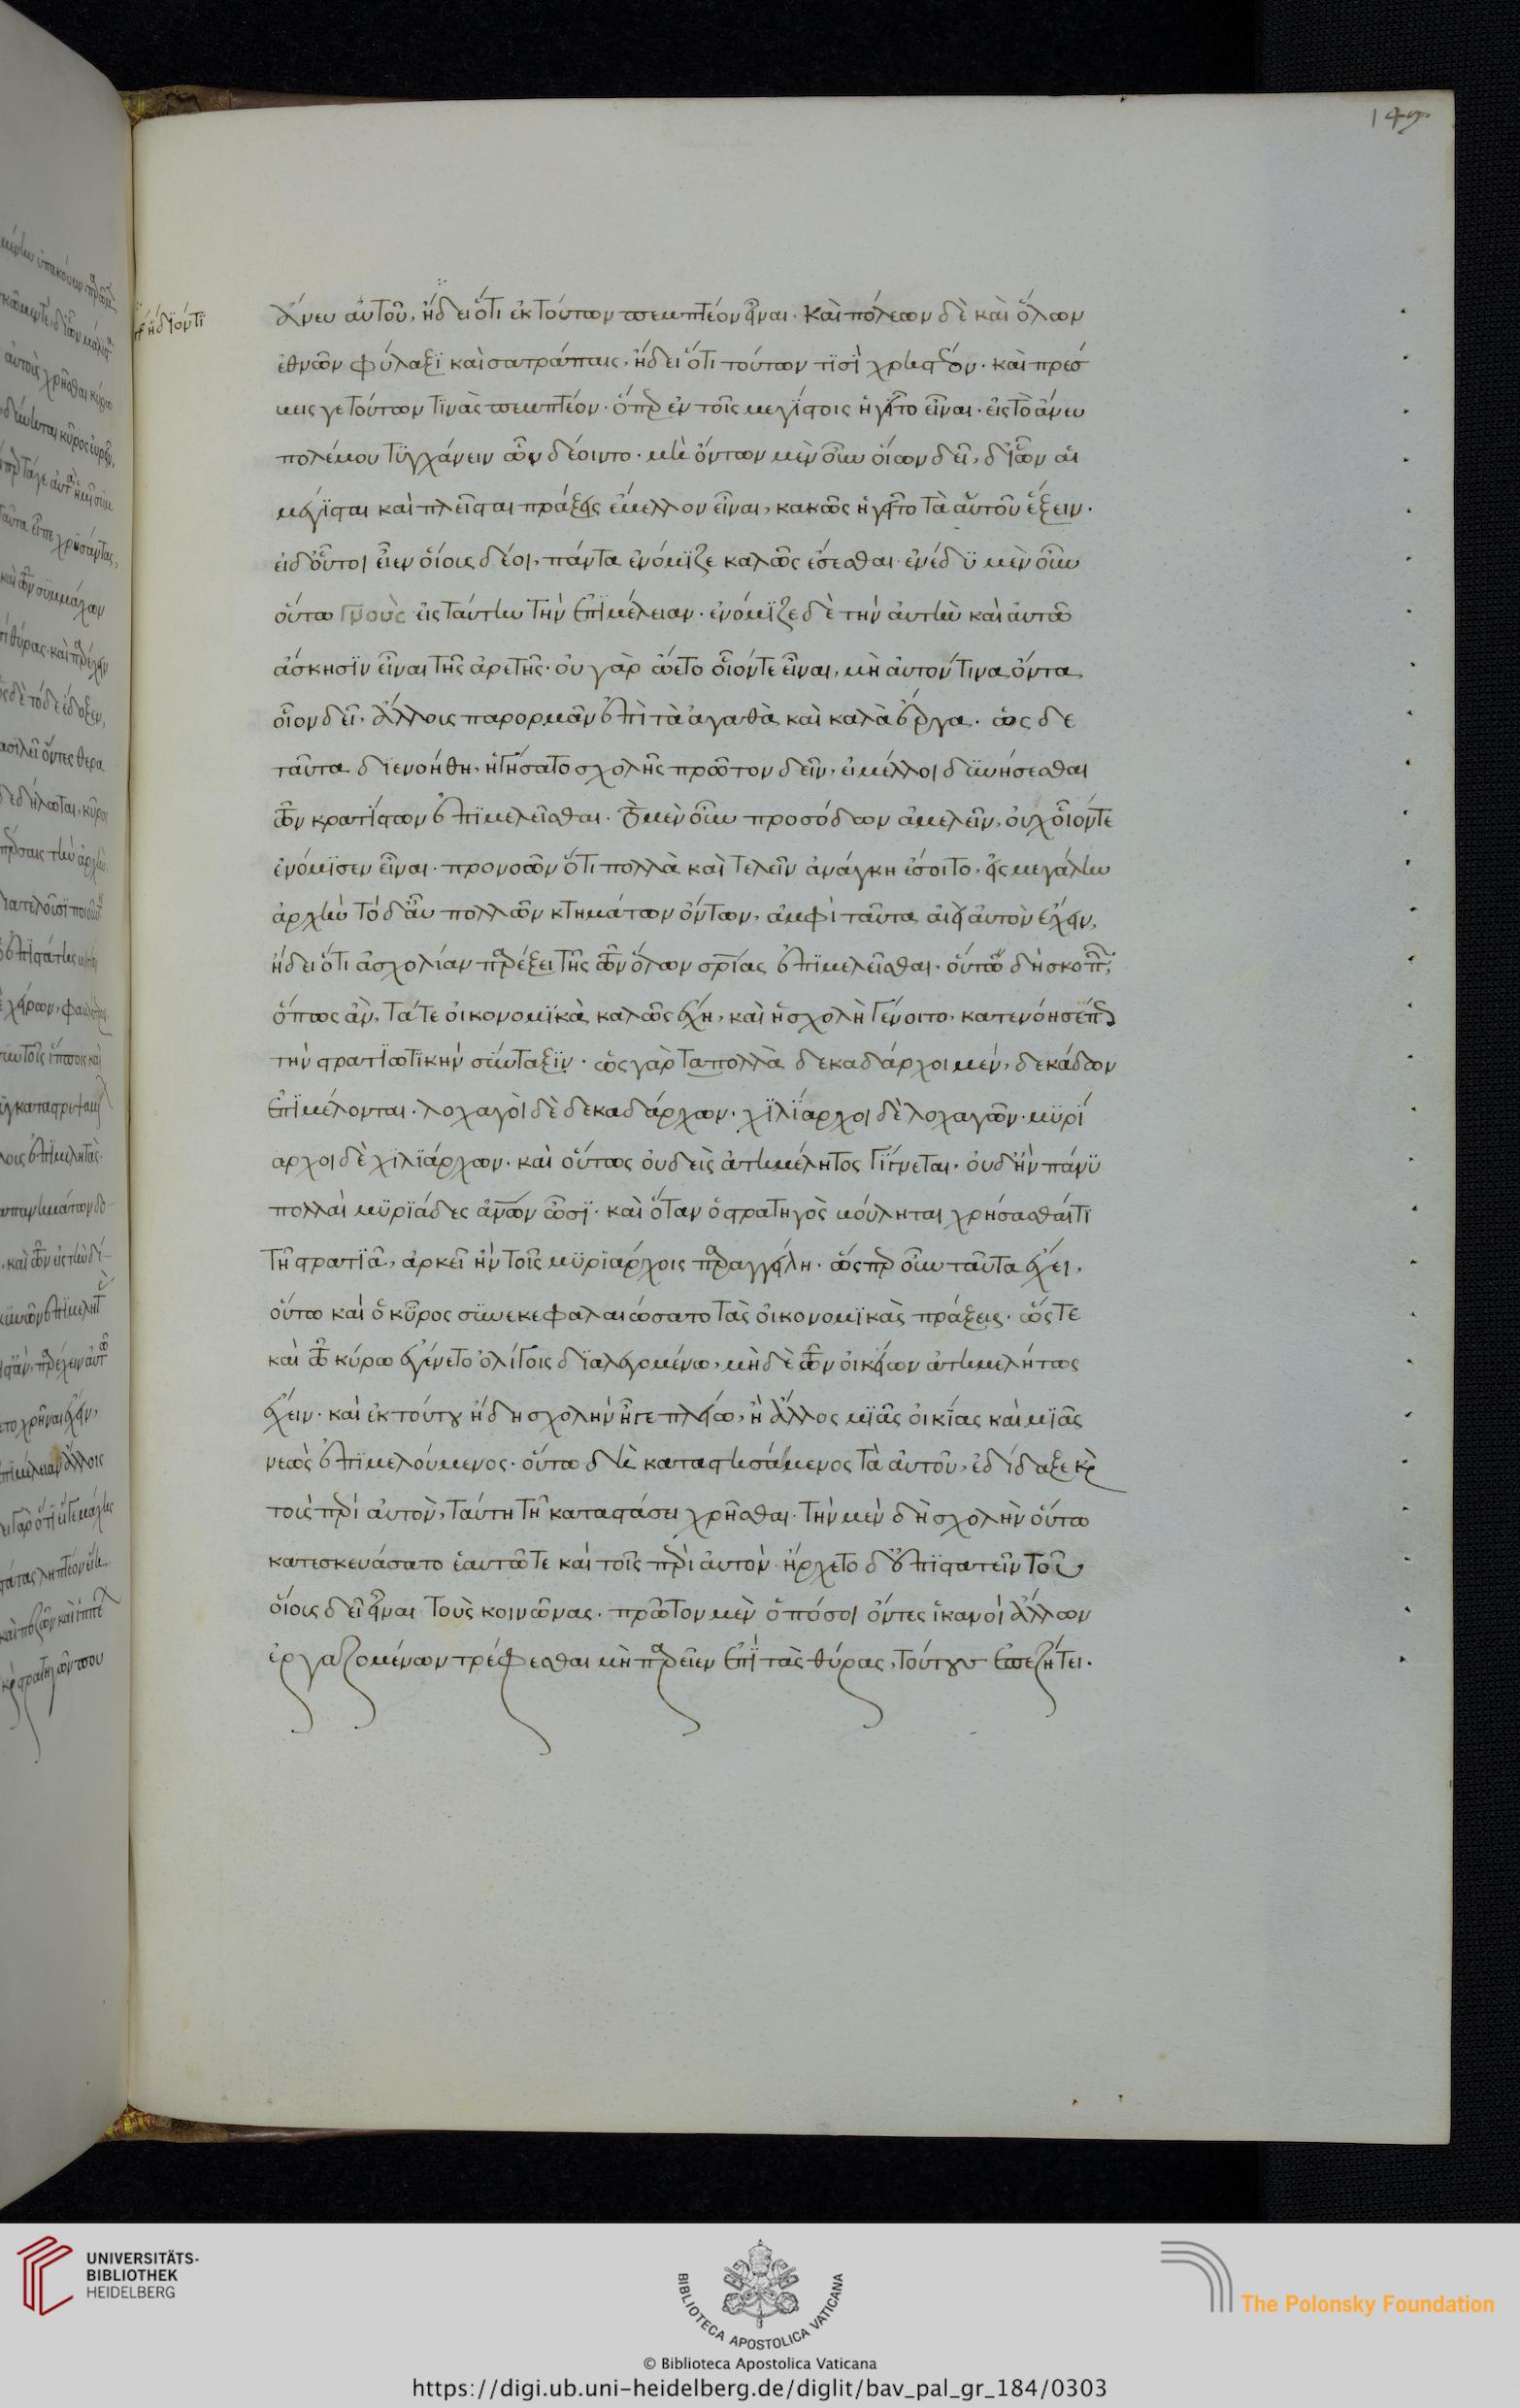 149.
ἡδϊόντϊ
ἄνευ αὐτοῦ, ᾔδει ὅτι ἐκ τούτων πεμπτέον εἶναι. καὶ πόλεων δὲ καὶ ὅλων
ἐθνῶν φύλαξϊ καὶ σατράπαις, ᾔδει ὅτι τούτων τϊσὶ χρηστέον. καὶ πρέσ
βεις γε τούτων τϊνὰς πεμπτέον. ὅπερ ἐν τοῖς μεγίστοις ἡγεῖτο εἶναι. εἰς τὸ ἄνευ
πολέμου τϋγχάνειν ὧν δέοιντο. μὴ ὄντων μὲν οὖν οἵων δεῖ, δι' ὧν αἱ
μέγϊσται καὶ πλεῖσται πράξεις ἔμελλον εἶναι, κακῶς ἡγεῖτο τὰ αὑτοῦ ἕξειν.
εἰ δ' οὗτοι εἶεν οἵους δέοι, πάντα ἐνόμϊζε καλῶς ἔσεσθαι. ἐνέδϋ μὲν οὖν
οὕτω γνοὺς εἰς ταύτην τὴν ἐπϊμέλειαν. ἐνόμϊζε δὲ τὴν αὐτὴν καὶ αὑτῶ
ἄσκησϊν εἶναι τῆς ἀρετῆς. οὐ γὰρ ὤετο οἷόντε εἶναι, μὴ αὐτόν τινα ὄντα
οἷον δεῖ, ἄλλοις παρορμᾶν ἐπὶ τὰ ἀγαθὰ καὶ καλὰ ἔργα. ὡς δε
ταῦτα διενοήθη, ἡγήσατο σχολῆς πρῶτον δεῖν, εἰ μέλλοι δϋνήσεσθαι
τῶν κρατίστων ἐπϊμελεῖσθαι. τὸ μὲν οὖν προσόδων ἀμελεῖν, οὐχ οἷόντε
ἐνόμϊσεν εἶναι. προνοῶν ὅτι πολλὰ καὶ τελεῖν ἀνάγκη ἔσοιτο, εἰς μεγάλην
ἀρχὴν τό δ' αὖ πολλῶν κτημάτων ὄντων, ἀμφὶ ταῦτα ἀεὶ αὐτὸν ἔχειν,
ᾔδει ὅτι ἀσχολίαν παρέξει τῆς τῶν ὅλων σωτηρίας ἐπϊμελεῖσθαι. οὕτω δὴ σκοπῶν,
ὅπως ἂν, τά τε οἰκονομϊκὰ καλῶς ἔχη, καὶ ἡ σχολὴ γένοιτο, κατενόησέ πως
τὴν στρατϊωτϊκὴν σύνταξϊν. ὡς γὰρ ταπολλὰ δεκαδάρχοι μέν, δεκάδων
ἐπϊμέλονται. λοχαγοὶ δὲ δεκαδάρχων. χϊλίαρχοι δὲ λοχαγῶν. μϋρί
αρχοι δὲ χϊλϊάρχων. καὶ οὕτως οὐδεὶς ἀτημέλητος γίγνεται. οὐδ' ἢν πάνϋ
πολλαὶ μϋρϊάδες ἀνῶν ὦσϊ. καὶ ὅταν ὁ στρατηγὸς βούληται χρήσασθαί τϊ
τῆ στρατϊᾶ, ἀρκεῖ ἢν τοῖς μϋρϊάρχοις παραγγείλη. ὥσπερ οὖν ταῦτα ἔχει,
οὕτω καὶ ὁ κῦρος σϋνεκεφαλαιώσατο τὰς οἰκονομϊκὰς πράξεις. ὥστε
καὶ τῶ κύρω ἐγένετο ὀλίγοις δϊαλεγομένω, μὴ δὲ τῶν οἰκείων ἀτημελήτως
ἔχειν. καὶ ἐκ τούτου ἤδη σχολὴν ἦγε πλείω, ἢ ἄλλος μϊᾶς οἰκίας καὶ μϊᾶς
νεὼς ἐπϊμελούμενος. οὕτω δὴ καταστησάμενος τὰ αὑτοῦ, ἐδίδαξε καὶ
τοὺς περὶ αὐτὸν, ταύτη τῆ καταστάσει χρῆσθαι. τὴν μὲν δὴ σχολὴν οὕτω
κατεσκευάσατο ἑαυτῶ τε καὶ τοῖς περὶ αὐτόν. ἤρχετο δ' ἐπϊστατεῖν τοῦ
οἵους δεῖ εἶναι τοὺς κοινῶνας. πρῶτον μὲν ὁπόσοι ὄντες ἱκανοὶ ἄλλων
ἐργαζομένων τρέφεσθαι μὴ παρεῖεν ἐπϊ τὰς θύρας, τούτους ἐπεζήτει.
UNIVERSITÄTS-
BIBLIOTHEK
HEIDELBERG
BIBLIOTECA APOSTOLICA VATICANA
The Polonsky Foundation
© Biblioteca Apostolica Vaticana
https://digi.ub.uni-heidelberg.de/diglit/bav_pal_gr_184/0303